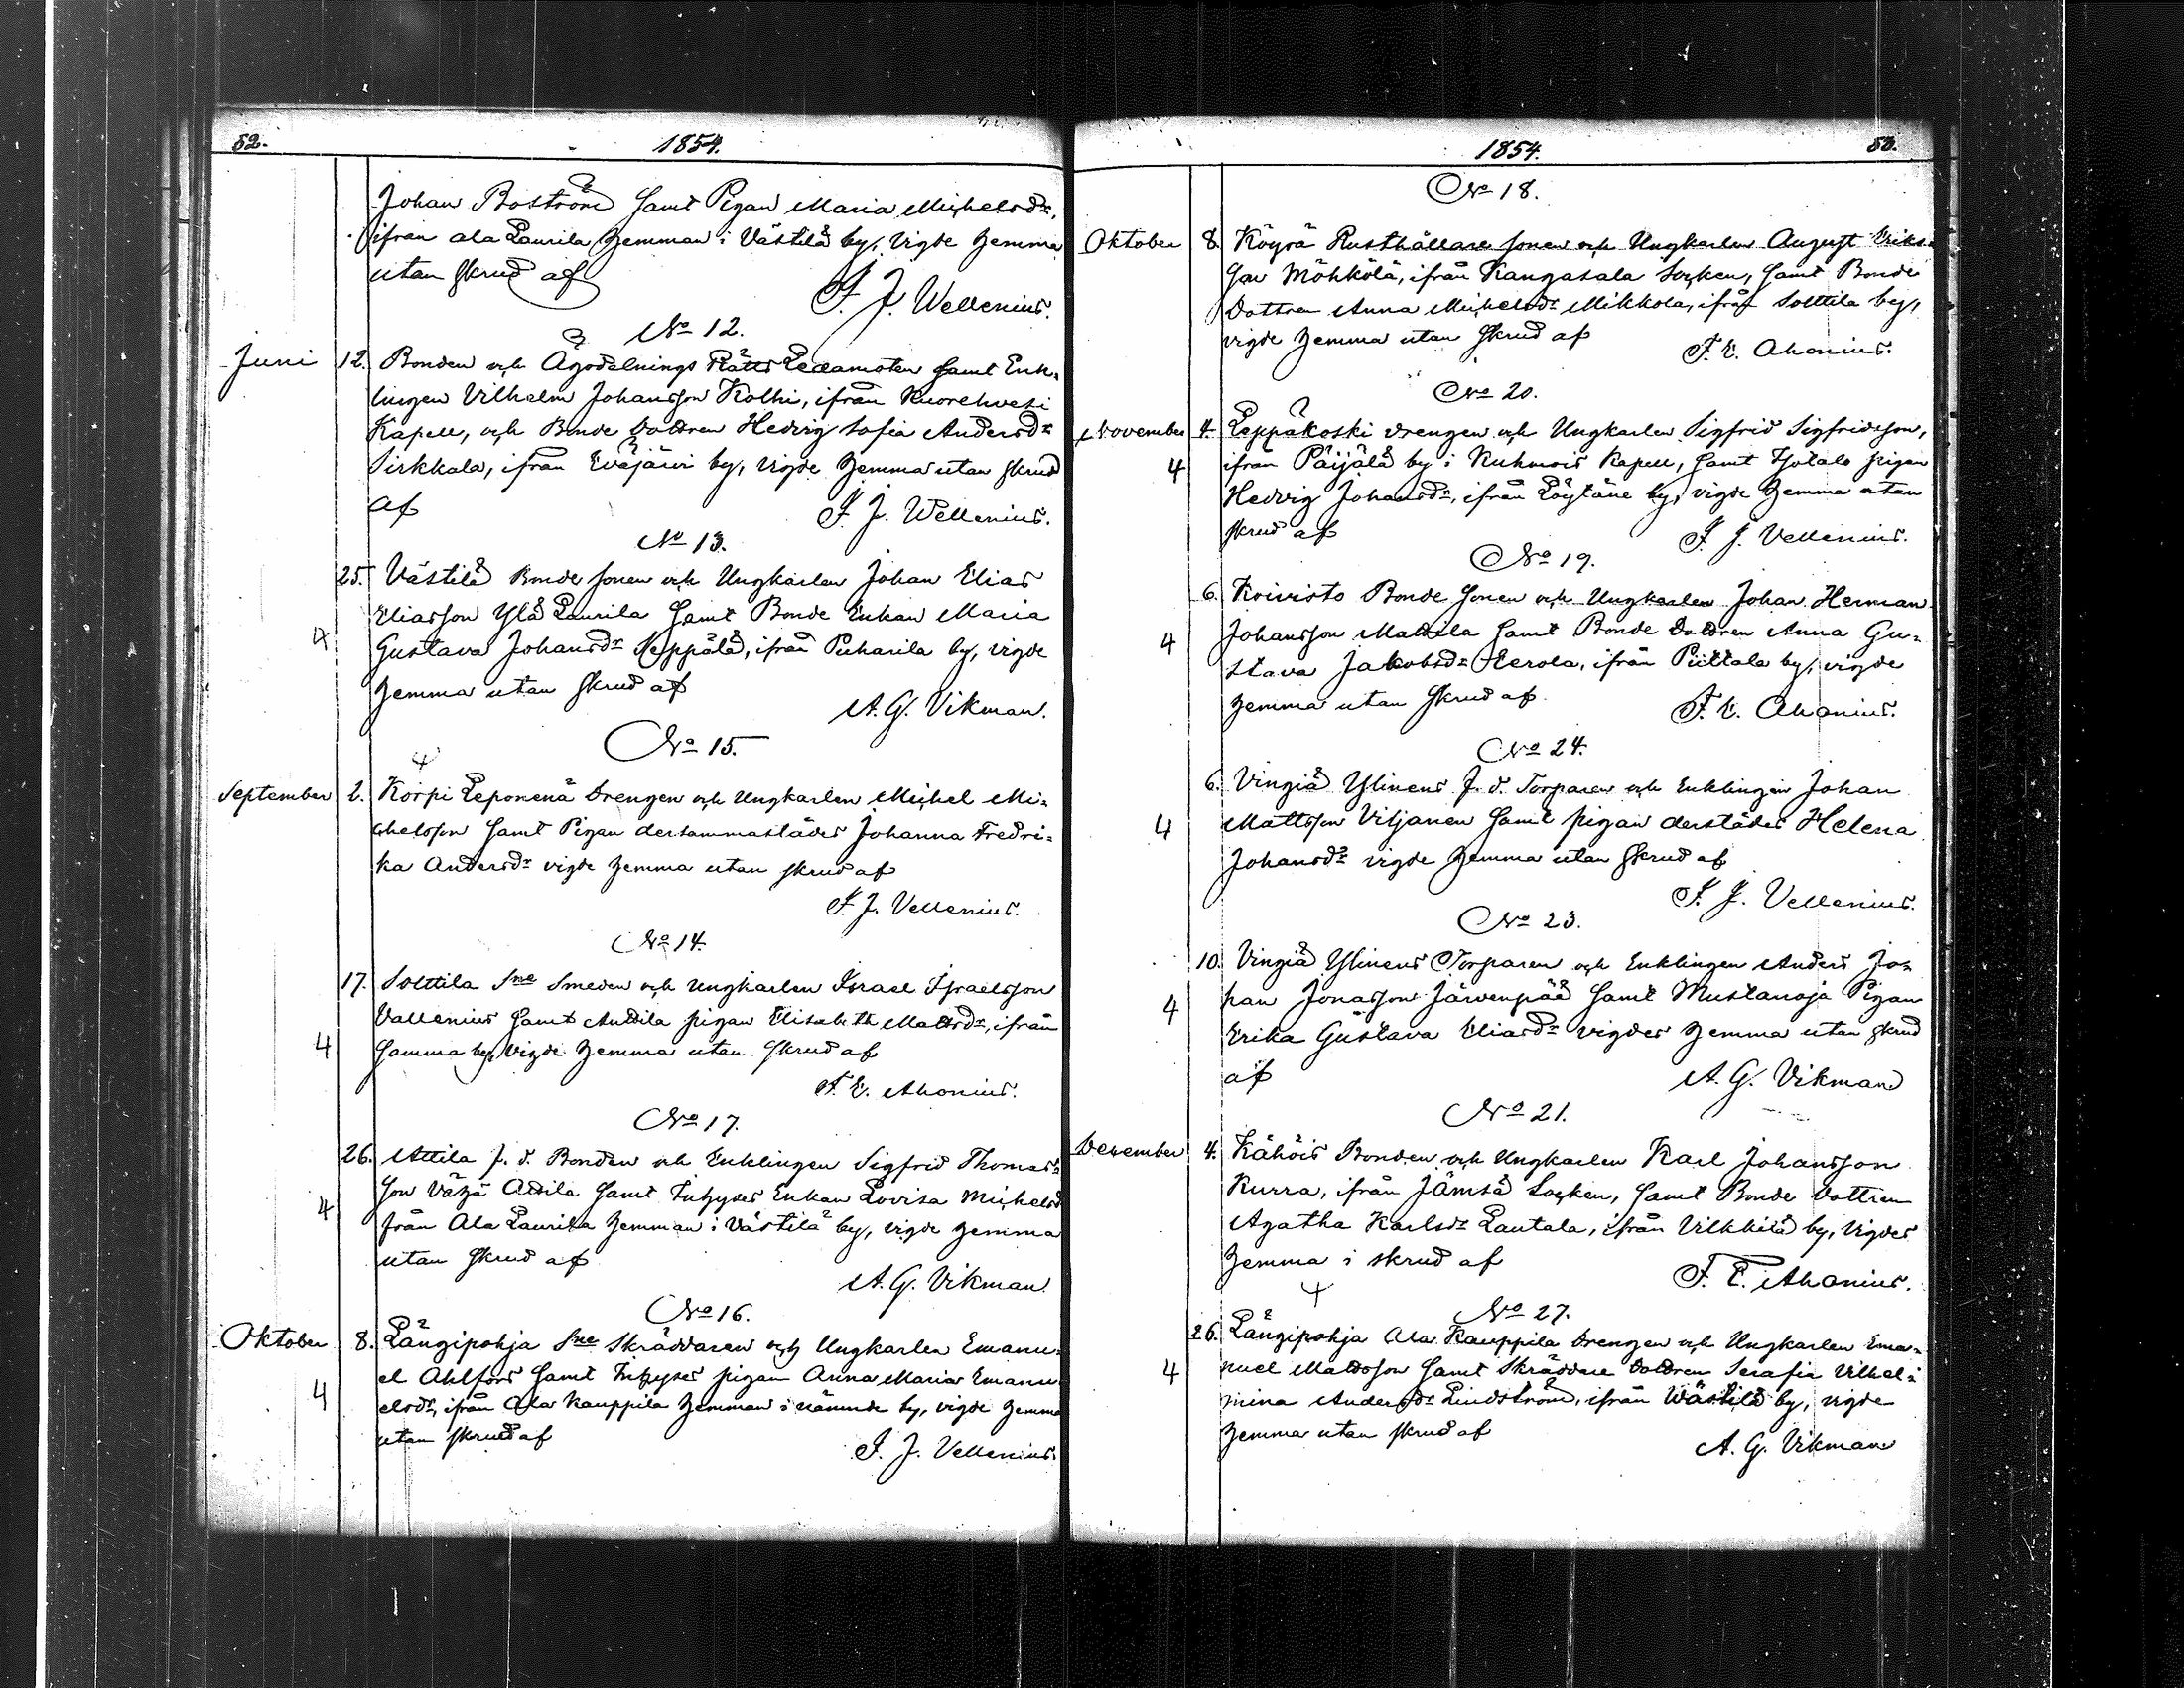 52.
1854.
Johan Boström samt Pigan Maria Michelsdr,
ifrån Ala Laurila hemman i Västilä by, vigde hemma
utan skrud af
F. J. Wellenius.
No 12.
Juni 12. Bonden och Ägodelnings Rätts Ledamoten samt Enk-
lingen Vilhelm Johansson Kolhi, ifrån Kuorehvesi
Kapell, och Bonde Dottren Hedvig Sofia Andersdr
Sirkkala, ifrån Eväjärvi by, vigde hemma utan skrud
af
F. J. Wellenius.
No 13.
25. Västilä Bonde sonen och Ungkarlen Johan Elias
Eliasson Ylä Laurila samt Bonde Enkan Maria
4 Gustava Johansdr Keppälä, ifrån Puharila by, vigde
hemma utan skrud af
A. G. Vikman.
No 15.
4
September 2. Korpi Leponenä Drengen och Ungkarlen Michel Mi-
chelsson samt Pigan dersammastädes Johanna Fredri-
ka Andersdr vigde hemma utan skrud af
F. J. Vellenius.
No 14.
17. Solttila Sne Smeden och Ungkarlen Israel Israelsson
Vallenius samt Anttila pigan Elisabeth Mattsdr, ifrån
4 samma by, vigde hemma utan skrud af
F. E. Ahonius.
No 17.
26. Attila f. d. Bonden och Enklingen Sigfrid Thomas-
son Vähä Attila samt Inhyses Enkan Lovisa Michelsd
4 från Ala Laurila hemman i Västilä by, vigde hemma
utan skrud af
A. G. Vikman.
No 16.
Oktober 8. Längipohja Sne Skräddaren och Ungkarlen Emanu-
el Ahlfors samt Inhyses pigan Anna Maria Emanu-
4 elsdr, ifrån Ala Kauppila hemman i nämnde by, vigde hemma
utan skrud af
F. J. Vellenius.
1854.
53.
No 18.
Oktober 8. Köyrä Rusthållare sonen och Ungkarlen August Eriks-
son Möhkölä, ifrån Kangasala Socken, samt Bonde
Dottren Anna Michelsdr Mikkola, ifrån Solttila by,
vigde hemma utan skrud af
F. E. Ahonius.
No 20.
November 4. Leppäkoski drengen och Ungkarlen Sigfrid Sigfridsson,
4 ifrån Päijälä by i Kuhmois Kapell, samt Isotalo pigan
Hedvig Johansdr, ifrån Löytäne by, vigde hemma utan
skrud af
F. J. Vellenius.
No 19.
6. Koivisto Bonde sonen och Ungkarlen Johan Herman
4 Johansson Mattila samt Bonde Dottren Anna Gu-
stava Jakobsdr Eerola, ifrån Piittala by, vigde
hemma utan skrud af
F. E. Ahonius.
No 24.
6. Vingiä Ylinens f. d. Torparen och Enklingen Johan
4 Mattsson Viljanen samt pigan derstädes Helena
Johansdr vigde hemma utan skrud af
F. J. Vellenius.
No 23.
10. Vingiä Ylinens Torparen och Enklingen Anders Jo-
4 han Jonasson Järvenpää samt Mustanoja Pigan
Erika Gustava Eliasdr vigdes hemma utan skrud
af
A. G. Vikman
No 21.
December 4. Kähöis Bonden och Ungkarlen Karl Johansson
Kurra, ifrån Jämsä Socken, samt Bonde dottren
Agatha Karlsdr Lautala, ifrån Vilkkilä by, vigdes
hemma i skrud af
F. E. Ahonius.
4
No 27.
26. Längipohja Ala Kauppila Drengen och Ungkarlen Ema-
4 nuel Mattsson samt Skräddare Dottren Serafia Vilhel-
mina Andersdr Lindström, ifrån Wästilä by, vigde
hemma utan skrud af
A. G. Vikman